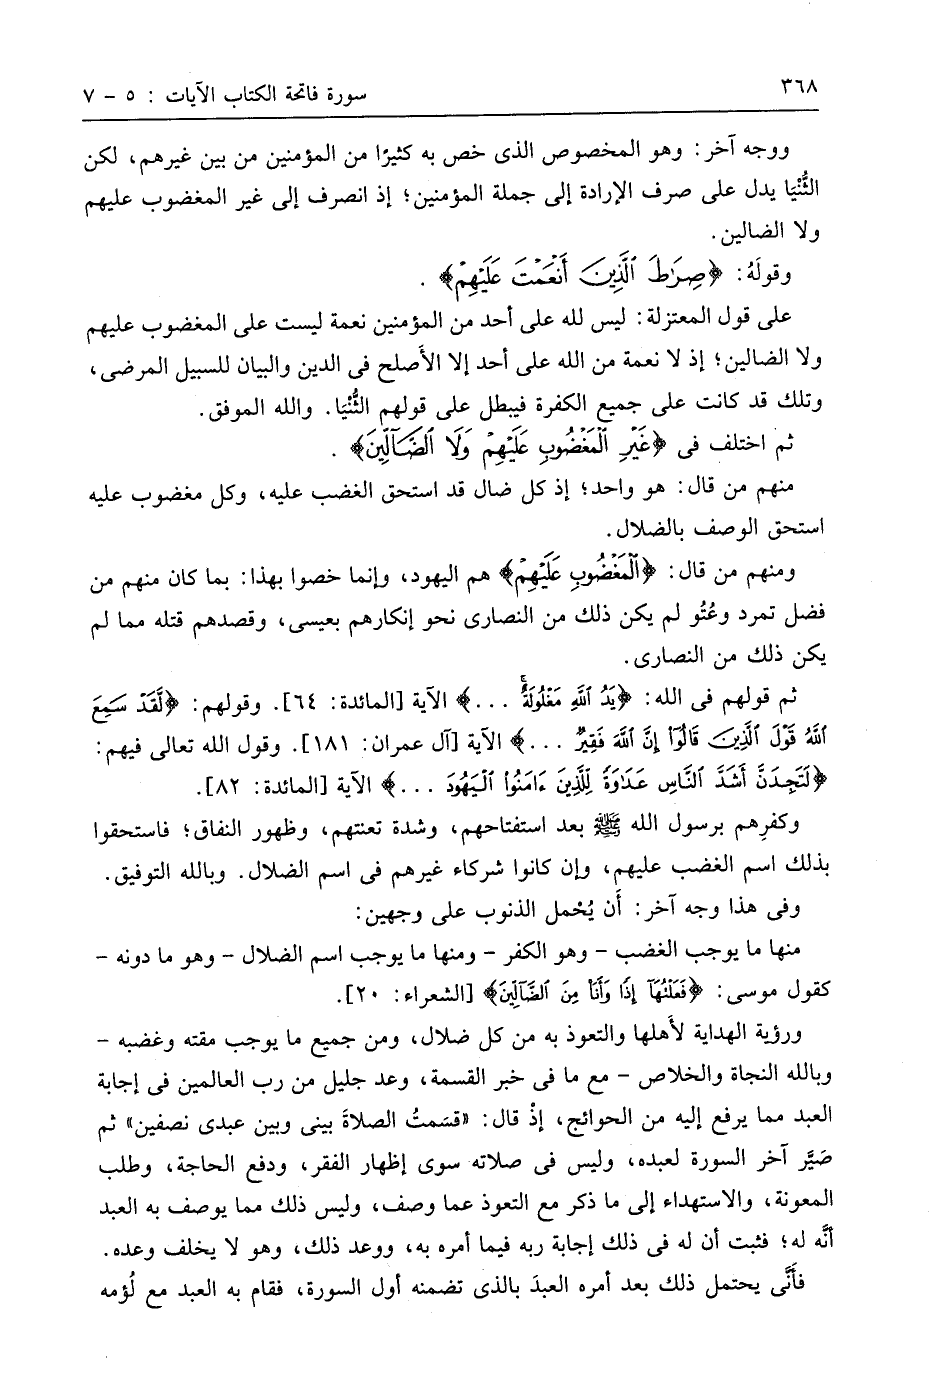 ٣٦٨
سورة فاتحة الكتاب الآيات : ٥ - ٧
ووجه آخر: وهو المخصوص الذى خص به كثيرًا من المؤمنين من بين غيرهم، لكن
الثُّنْيَا يدل على صرف الإرادة إلى جملة المؤمنين؛ إذ انصرف إلى غير المغضوب عليهم
ولا الضالين.
وقولَهُ: ﴿صِرَٰطَ ٱلَّذِينَ أَنْعَمْتَ عَلَيْهِمْ﴾ .
على قول المعتزلة: ليس لله على أحد من المؤمنين نعمة ليست على المغضوب عليهم
ولا الضالين؛ إذ لا نعمة من الله على أحد إلا الأَصلح فى الدين والبيان للسبيل المرضى،
وتلك قد كانت على جميع الكفرة فيبطل على قولهم الثُّنْيَا. والله الموفق.
ثم اختلف فى ﴿غَيْرِ ٱلْمَغْضُوبِ عَلَيْهِمْ وَلَا ٱلضَّآلِّينَ﴾ .
منهم من قال: هو واحد؛ إذ كل ضال قد استحق الغضب عليه، وكل مغضوب عليه
استحق الوصف بالضلال.
ومنهم من قال: ﴿ٱلْمَغْضُوبِ عَلَيْهِمْ﴾ هم اليهود، وإنما خصوا بهذا: بما كان منهم من
فضل تمرد وعُتُو لم يكن ذلك من النصارى نحو إنكارهم بعيسى، وقصدهم قتله مما لم
يكن ذلك من النصارى.
ثم قولهم فى الله: ﴿يَدُ ٱللَّهِ مَغْلُولَةٌۚ ...﴾ الآية [المائدة: ٦٤]. وقولهم: ﴿لَّقَدْ سَمِعَ
ٱللَّهُ قَوْلَ ٱلَّذِينَ قَالُوٓاْ إِنَّ ٱللَّهَ فَقِيرٌ ...﴾ الآية [آل عمران: ١٨١]. وقول الله تعالى فيهم:
﴿لَتَجِدَنَّ أَشَدَّ ٱلنَّاسِ عَدَٰوَةً لِّلَّذِينَ ءَامَنُواْ ٱلْيَهُودَ ...﴾ الآية [المائدة: ٨٢].
وكفرِهم برسول الله ﷺ بعد استفتاحهم، وشدة تعنتهم، وظهور النفاق؛ فاستحقوا
بذلك اسم الغضب عليهم، وإن كانوا شركاء غيرهم فى اسم الضلال. وبالله التوفيق.
وفى هذا وجه آخر: أَن يُحْمل الذنوب على وجهين:
منها ما يوجب الغضب - وهو الكفر - ومنها ما يوجب اسم الضلال - وهو ما دونه -
كقول موسى: ﴿فَعَلْتُهَآ إِذًا وَأَنَا۠ مِنَ ٱلضَّآلِّينَ﴾ [الشعراء: ٢٠].
ورؤية الهداية لأَهلها والتعوذ به من كل ضلال، ومن جميع ما يوجب مقته وغضبه -
وبالله النجاة والخلاص - مع ما فى خبر القسمة، وعد جليل من رب العالمين فى إجابة
العبد مما يرفع إليه من الحوائج، إذْ قال: «قسَمتُ الصلاةَ بينى وبين عبدى نصفين» ثم
صَيَّر آخر السورة لعبده، وليس فى صلاته سوى إظهار الفقر، ودفع الحاجة، وطلب
المعونة، والاستهداء إلى ما ذكر مع التعوذ عما وصف، وليس ذلك مما يوصف به العبد
أنَّه له؛ فثبت أن له فى ذلك إجابة ربه فيما أمره به، ووعد ذلك، وهو لا يخلف وعده.
فأَنَّى يحتمل ذلك بعد أمره العبدَ بالذى تضمنه أول السورة، فقام به العبد مع لُؤمه